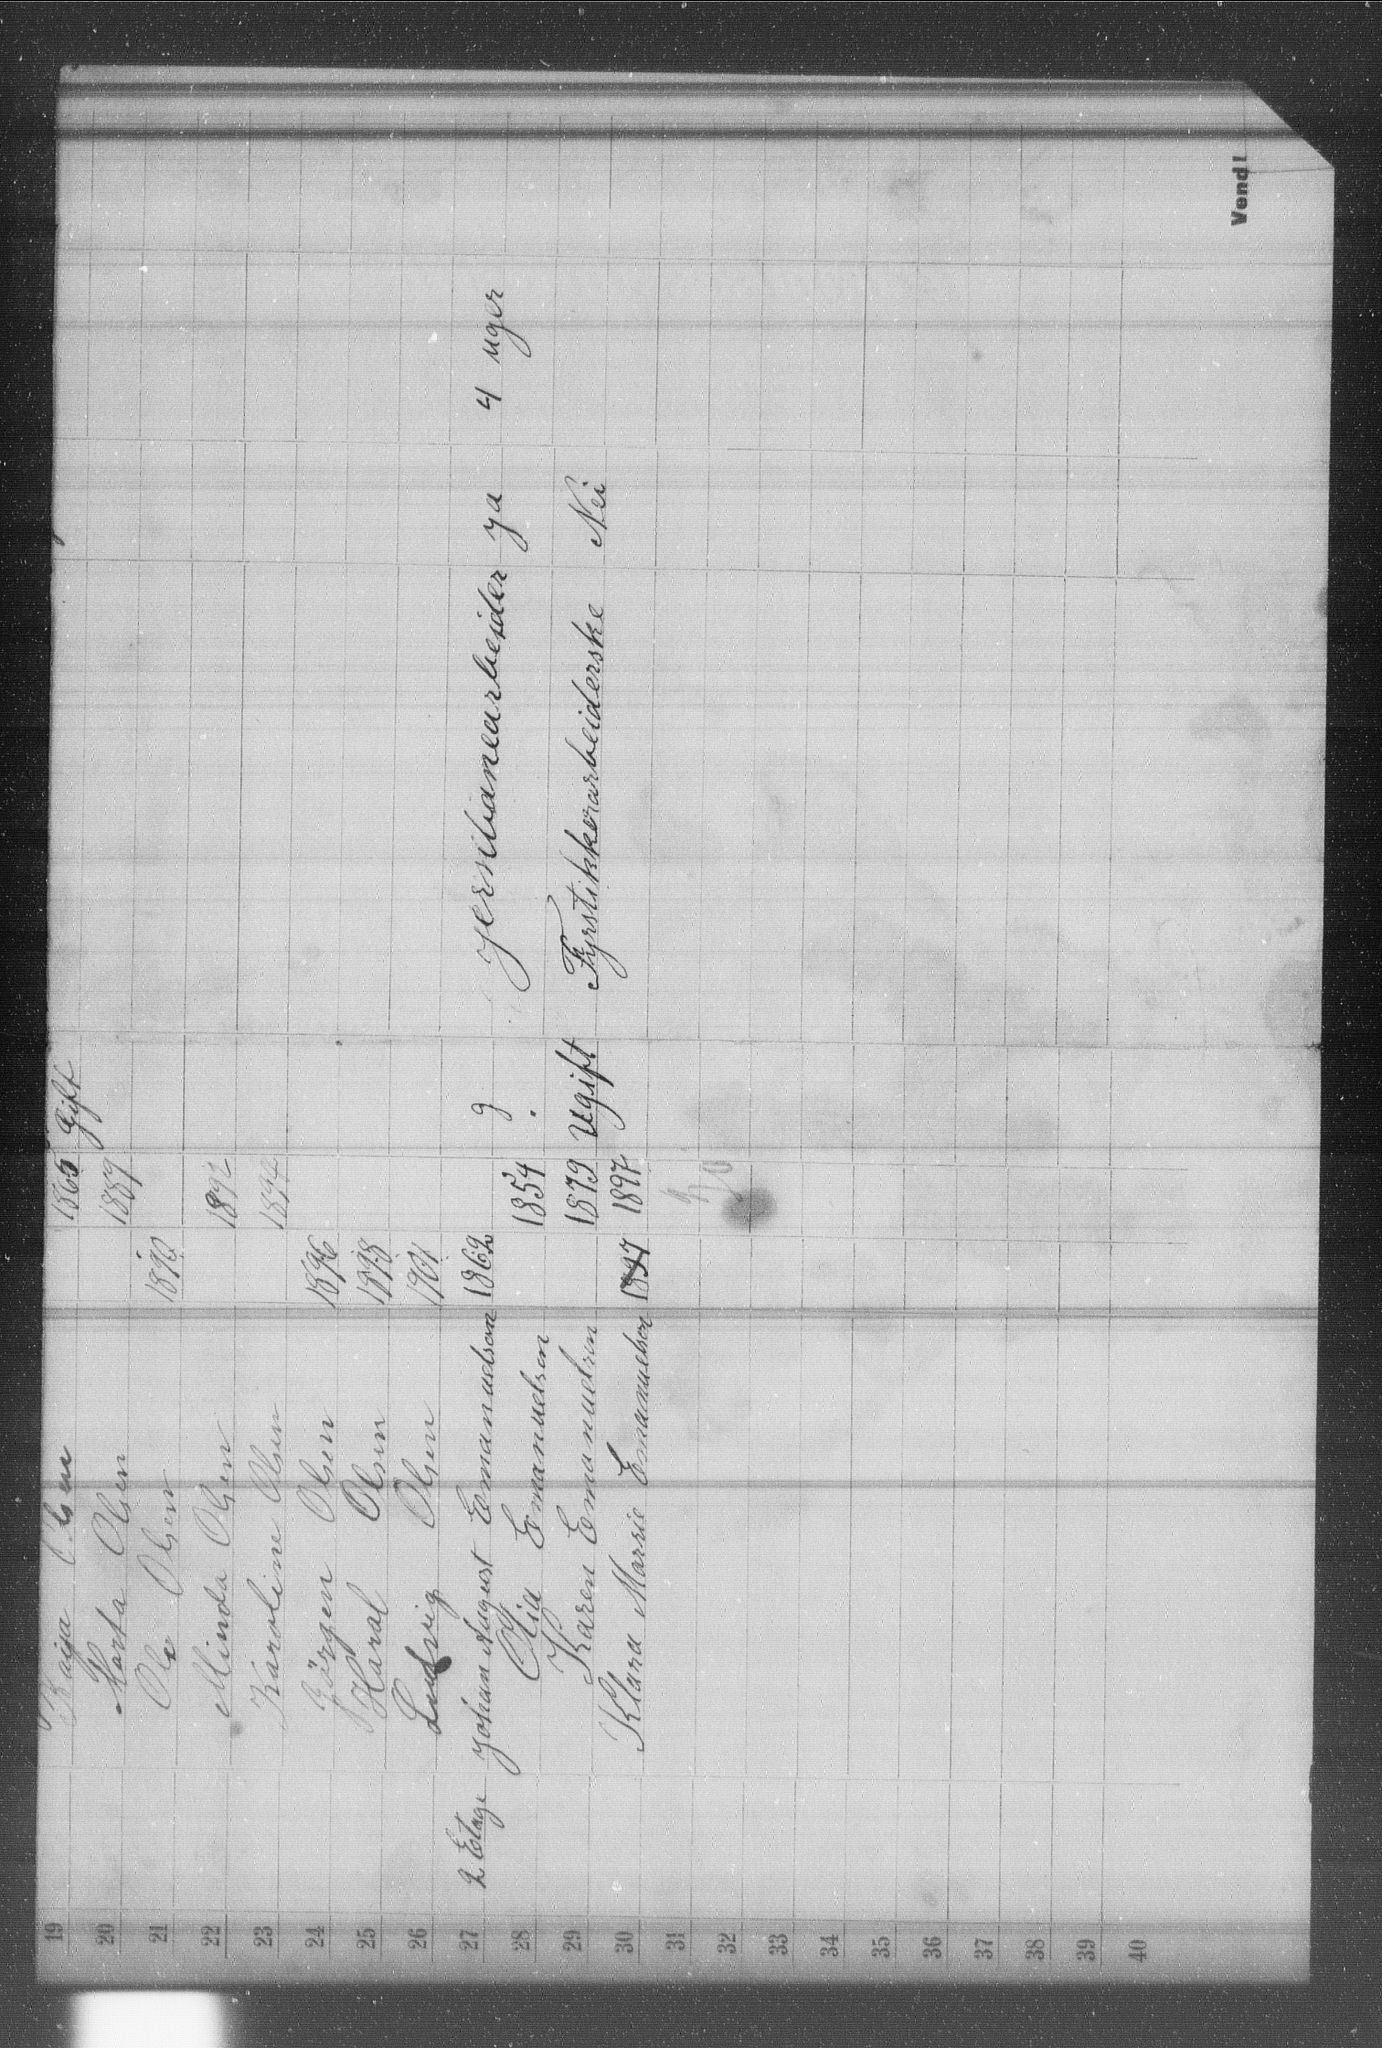 19 Kaija Olsen 1865 Gift
20 Marta Olsen 1889
21 Ole Olsen 1890
22 Minda Olsen 1892
23 Karoline Olsen 1894
24 Jörgen Olsen 1896
25 Haral Olsen 1898
26 Ludvig Olsen 1901
27 2 Etage Johan August Emanuelson 1862 g Jernbanearbeider ja 4 uger
28 Olia Emanuelsen 1854
29 Karen Emanuelsen 1879 Ugift Fyrstikkerarbeiderske Nei
30 Klara Marrie Emanuelsen 1897 1897
31
32
33
34
35
36
37
38
39
40
Vend!